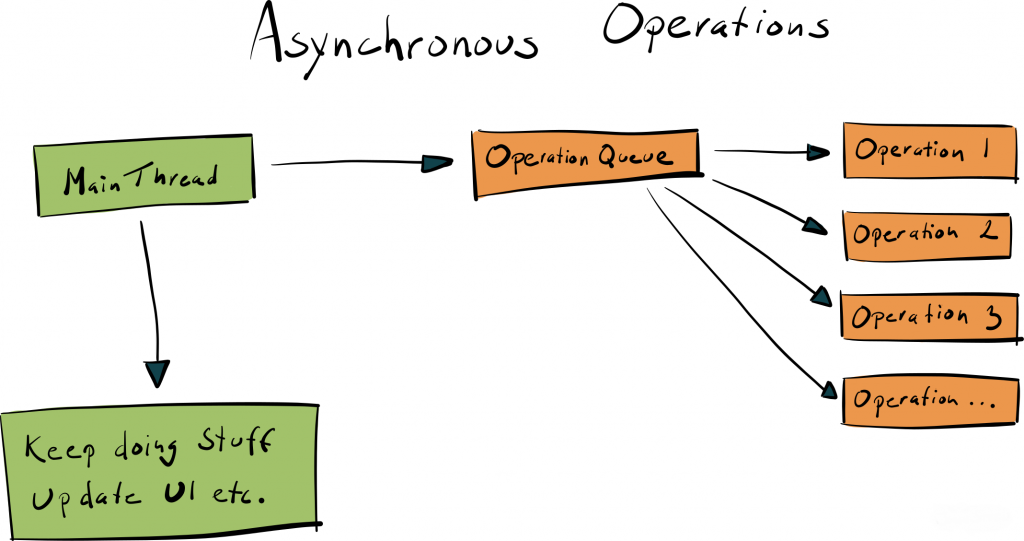 Asynchronous Operations
Main Thread
Operation Queue
Operation 1
Operation 2
Operation 3
Operation ...
Keep doing Stuff
Update UI etc.